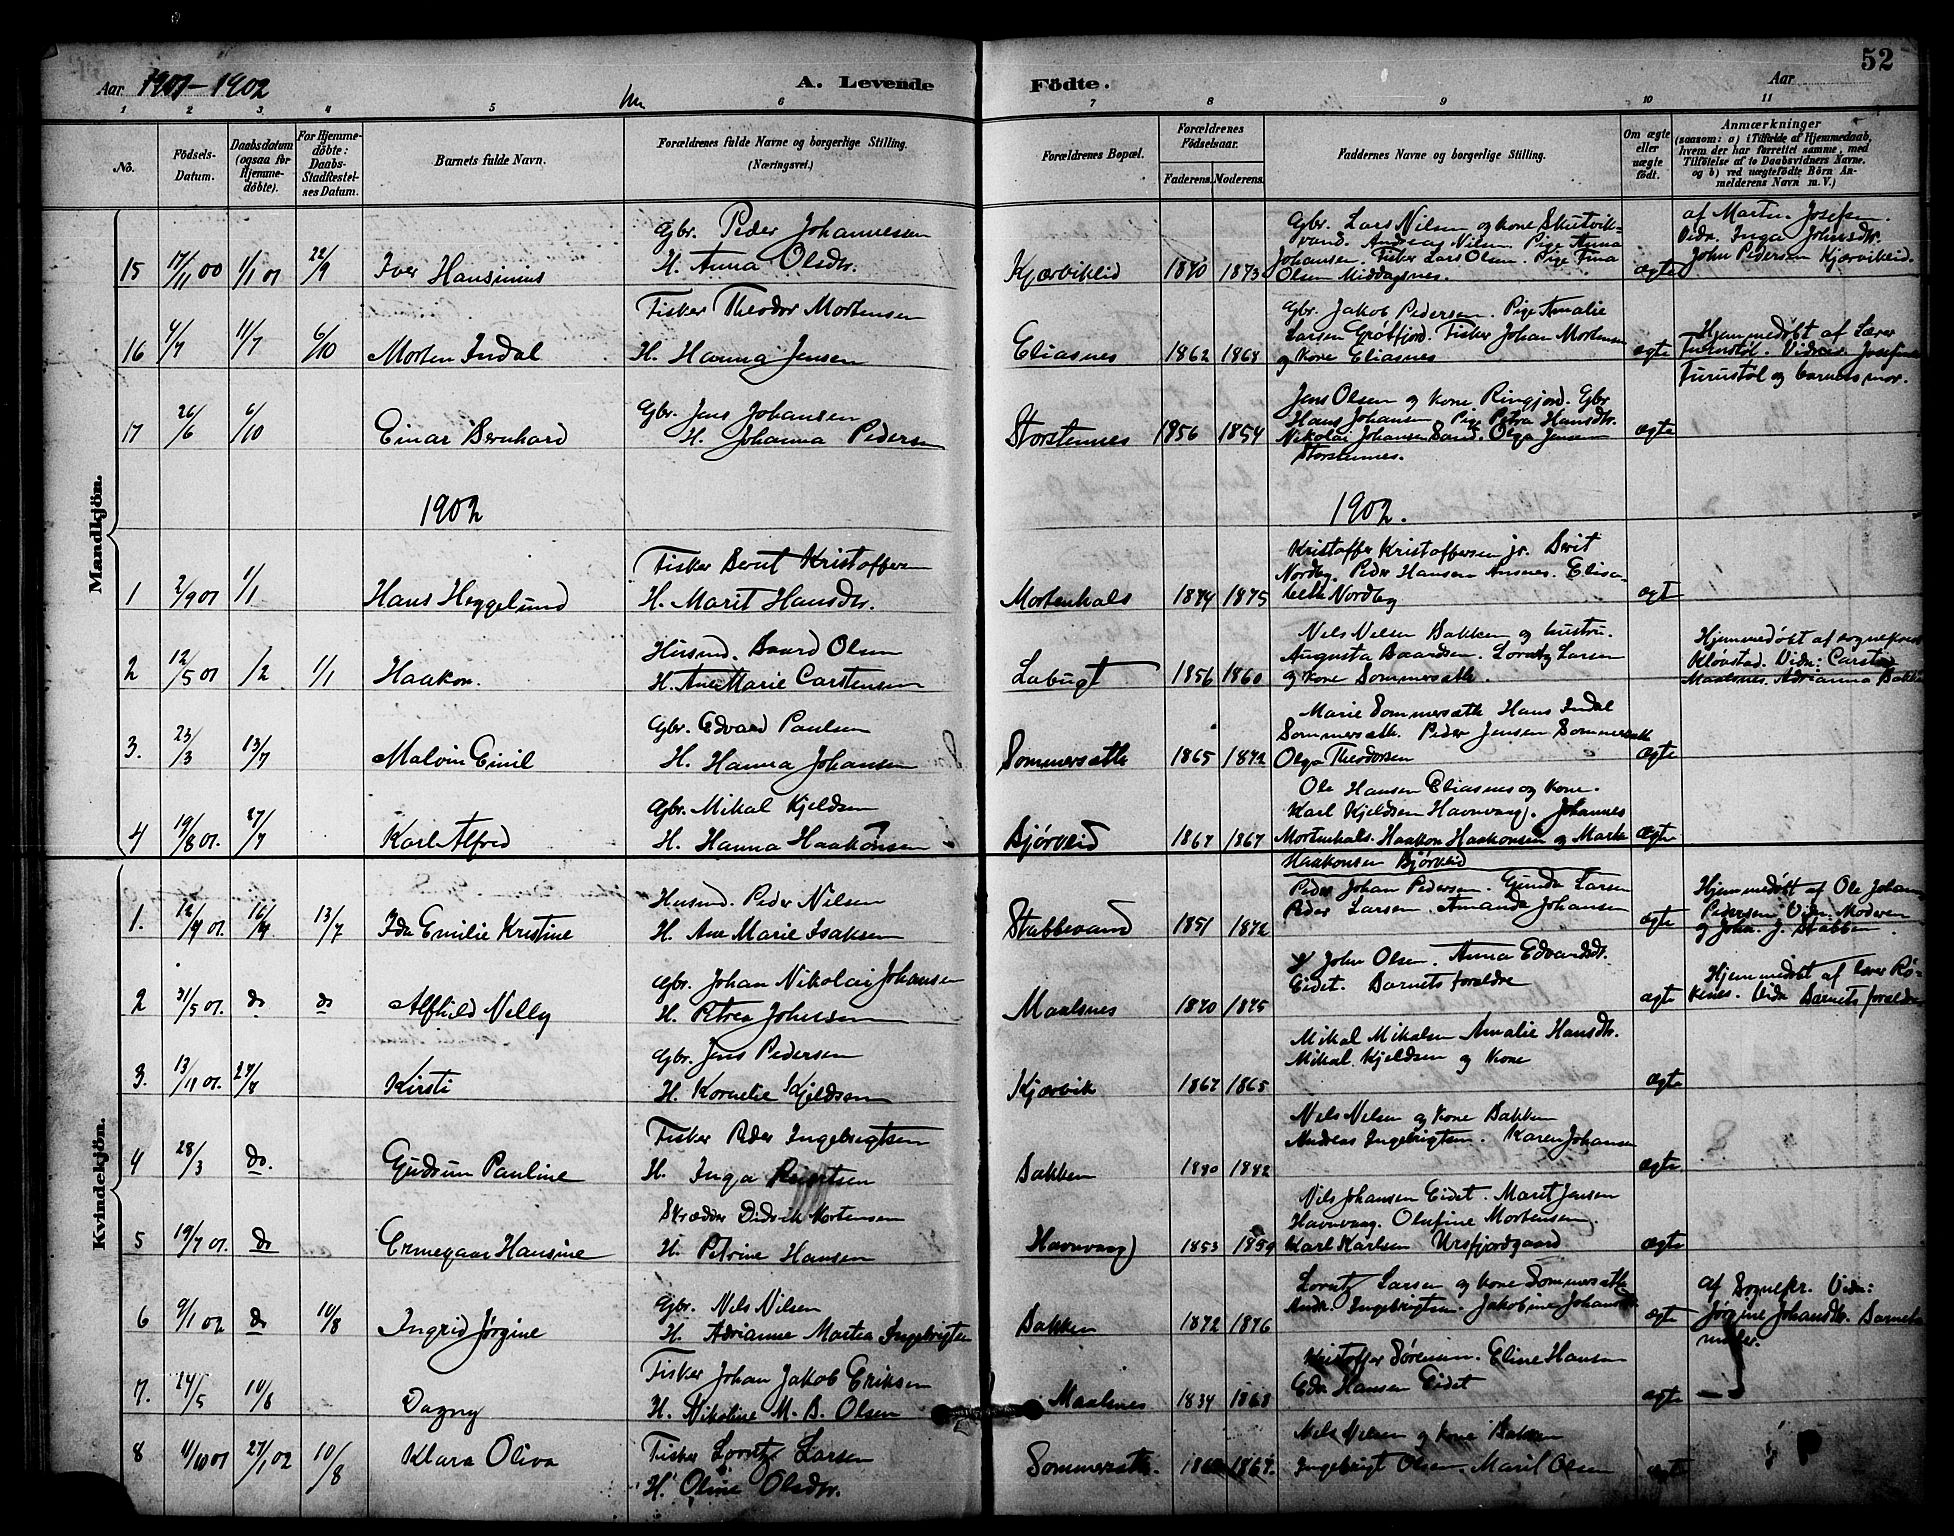 52
Aar 1901-1902
A. Levende Födte.
Aar
1 2 3 4 5 6 7 8 9 10 11
No.
Födsels-Datum.
Daabsdatum (ogsaa for Hjemmedöbte).
For Hjemmedöbte: Daabs-Stadfæstelses Datum.
Barnets fulde Navn.
Forældrenes fulde Navne og borgerlige Stilling. (Næringsvei.)
Forældrenes Bopæl.
Forældrenes Födselsaar.
Faderens. Moderens.
Faddernes Navne og borgerlige Stilling.
Om ægte eller uægte födt.
Anmærkninger
(saasom: a) i Tilfælde af Hjemmedaab, hvem der har forrettet samme, med Tilföielse af to Daabsvidners Navne. og b) ved uægtefödte Börn Anmelderens Navn m. V.)
Mandkjön.
15 17/11 00 1/1 01 22/9 Iver Hansinius
Gbr. Peder Johannesen
H. Anna Olsdtr.
Kjærviklid 1870 1873
Gbr. Lars Nilsen og kone Skutvik-
vand. Andreas Nilsen. Pige Anna
Johansen. Fisker Lars Olsen. Pige Tina
Olsen Middagsnes.
ægte
af Martin Josefsen.
Vidn. Inga Johnsdtr.
John Pedersen Kjærviklid.
16 4/7 11/7 6/10 Morten Indal
Fisker Theodor Mortensen
H. Hanna Jensen
Eliasnes 1862 1868
Gbr. Jakob Pedersen. Pige Amalie
Larsen Grøtfjord. Fisker Johan Mortensen
og kone Eliasnes
ægte
Hjemmedøbt af Lærer
Furustøl. Vidner Josefine
Furustøl og barnets mor.
17 26/6 6/10 Einar Bernhard
Gbr. Jens Johansen
H. Johanna Pedersen
Storstennes 1856 1854
Jens Olsen og kone Ringjord. Gbr
Hans Johansen Pige Petra Hansdtr.
Nikolai Johansen Sand. Olga Jensen
Storstennes.
ægte
1902
1902.
1 2/9 01 1/1 Hans Heggelund
Fisker Berut Kristoffersen
H. Marit Hansdtr.
Mortenhals 1874 1875
Kristoffer Kristoffersen jr. Berit
Nordby. Peder Hansen Ansnes. Elisa-
beth Nordby
ægt
2 12/5 01 /2 1/1 Haakon.
Husmd. Baard Olsen
H. Ane Marie Carstensen
Labugt 1856 1860
Nels Nelsen Bakken og hustru.
Augusta Baardsen. Lorntz Larsen
og kone Sommersæth.
ægte
Hjemmedøbt af sognepræst
Kløvstad. Vidn: Carsten
Maalsnes. Adrianna Bakken
3. 23/3 13/7 Malvin Emil
Gbr. Edvard Paulsen
H. Hanna Johansen
Sommersæth 1865 1872
Marie Sommersæth Hans Indal
Sommersæth. Peder Jensen Sommersæth
Olga Theodorsen
ægte
4 19/8 01. 27/7 Karl Alfred
Gbr. Mikal Kjeldsen
H. Hanna Haakonsen
Bjørveid 1867 1867
Ole Hansen Eliasnes og kone.
Karl Kjeldsen Havnvaag. Johannes
Mortenhals. Haakon Haakonsen og Marthe
Haakonsen Bjørveid
ægte
Kvindekjön.
1. 12/4 01. 16/4 13/7 Ida Emilie Kristine
Husmd. Peder Nilsen
H. Ane Marie Isaksen
Stabbevand 1851 1872
Peder Johan Pedersen. Gunda Larsen
Peder Larsen. Amanda Johansen
ægte
Hjemmedøbt af Ole Johan
Pedersen Vidn. Moderen
og Joha. J. Stabben.
2 31/5 01. do do Alfhild Nelly
Gbr. Johan Nikolai Johansen
H. Petrea Johnsen
Maalsnes 1870 1875
John Olsen. Anna Edvardsdtr.
Eidet. Barnets forældre
ægte
Hjemmedøbt af lærer Rø-
kenes. Vidn Barnets forældre
3. 13/11 01. 27/7 Kirsti
Gbr. Jens Pedersen
H. Kornelie Kjeldsen
Kjærvik 1867 1865
Mikal Mikalsen Amalie Hansdtr.
Mikal Kjeldsen og kone
ægte
4 28/3 do. Gudrun Pauline
Fisker Peder Ingebrigtsen
H. Inga
Bakken 1880 1882
Nels Nelsen og kone Bakken
Andreas Ingebrigtsen. Karen Johansen
ægte
5 19/7 01. do Ermegaar Hansine
Skrædder Didrik Mortensen
H. Petrine Hansen
Havnvaag 1853 1859
Nils Johansen Eidet. Maret Jensen
Havnvaag. Olufine Mortensen.
Karl Karlsen Ursfjordgaard
ægte
6 9/1 02 do 10/8 Ingrid Jørgine
Gbr. Nels Nilsen
H. Adrianne Martea Ingebrigtsen
Bakken 1872 1876
Lorntz Larsen og kone Sommersæth
Andr. Ingebrigtsen. Jakobine Johansdtr.
ægte
af Sognepr. Vidn:
Jørgine Johansdtr. Barnets
moder.
7. 24/5 10/8 Dagny
Fisker Johan Jakob Eriksen
H. Nikoline M. B. Olsen
Maalsnes 1834 1868
Kristoffer Sørensen. Eline Hansen
Edv. Hansen Eidet
ægte
8 11/10 01 27/1 02 10/8 Klara Oliva
Fisker Lorntz Larsen
H. Oline Olsdtr.
Sommersæth. 1867.
Nels Nelsen og kone Bakken
Ingebrigt Olsen. Maril Olsen
ægte